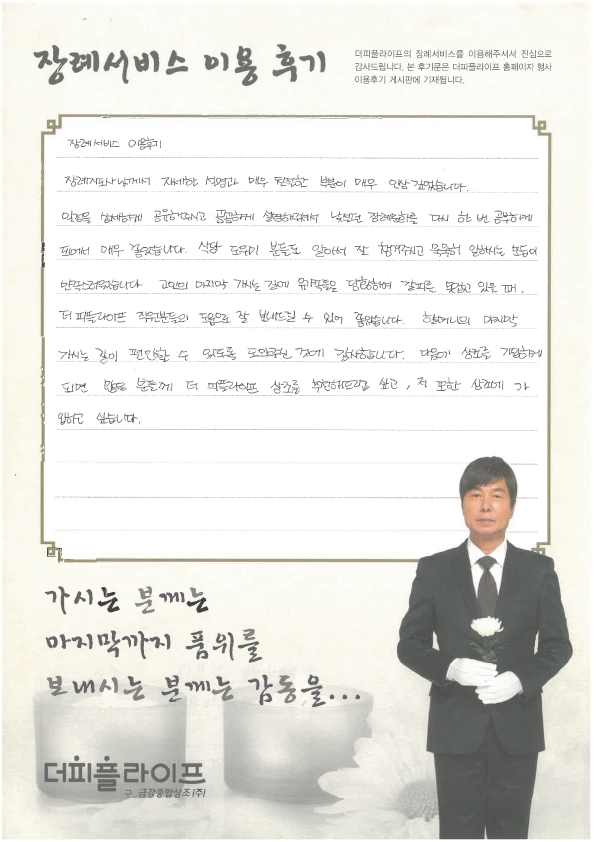 장례서비스 이용 후기
더피플라이프의 장례서비스를 이용해주셔서 진심으로
감사드립니다. 본 후기문은 더피플라이프 홈페이지 행사
이용후기 게시판에 기재됩니다.
장례서비스 이용후기
장례지도사님께서 자세한 설명과 매우 친절한 부분이 매우 인상 깊었습니다.
일정을 상세하게 공유해주시고 꼼꼼하게 설명해주셔서 낯설던 장례절차를 다시 한 번 공부하게
되어서 매우 좋았습니다. 식당 도우미 분들도 알아서 잘 챙겨주시고 묵묵히 일하시는 모습이
만족스러웠습니다. 고인의 마지막 가시는 길에 유가족들은 당황하여 갈피를 못잡고 있을 때,
더 피플라이프 직원분들의 도움으로 잘 보내드릴 수 있어 좋았습니다. 할머니의 마지막
가시는 길이 편안할 수 있도록 도와주신 것에 감사합니다. 다음에 상조를 가입하게
되면 많은 분들께 더 피플라이프 상조를 추천해드리고 싶고, 저 또한 상조에 가
입하고 싶습니다.
가시는 분께는
마지막까지 품위를
보내시는 분께는 감동을...
더피플라이프
구. 금강종합상조(주)